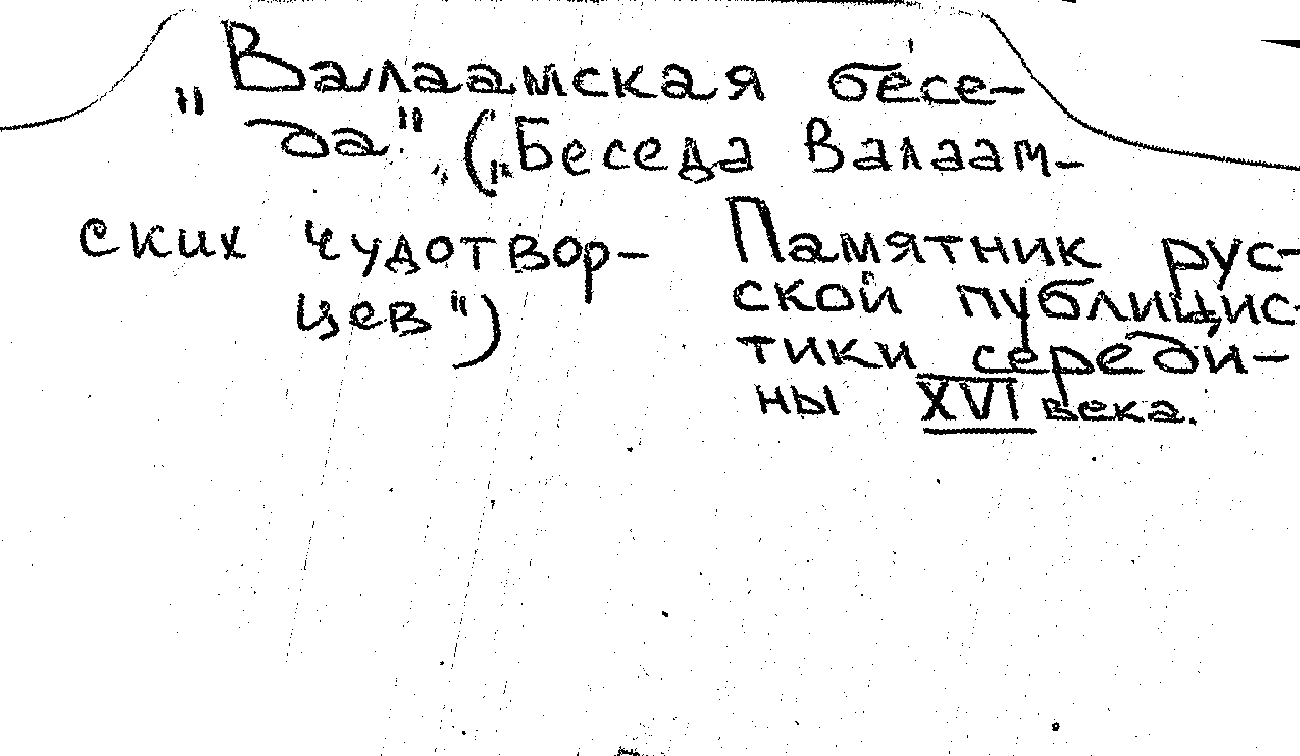 "Валаамская бесе́-
да", ("Беседа Валаам-
ских чудотвор-
цев")
Памятник рус-
ской публицис-
тики середи-
ны XVI века.